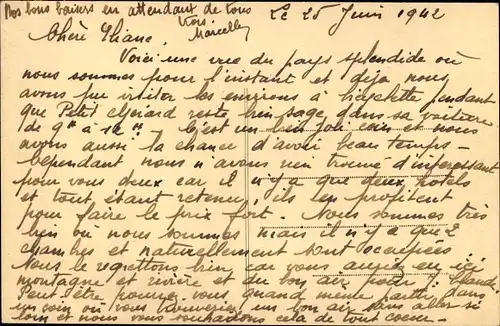 Nos bons baisers en attendant de vous
voir. Marcelle
Le 25 Juin 1942
Chère Eliane,
Voici une vue du pays splendide où
nous sommes pour l'instant et déjà nous
avons pu visiter les environs à bicyclette pendant
que Petit Gérard reste bien sage dans sa voiture
de 9h à 12h. C'est un bien joli coin et nous
avons aussi la chance d'avoir beau temps -
Cependant nous n'avons rien trouvé d'intéressant
pour vous deux car il n'y a que deux hotels
et tout étant retenu, ils en profitent
pour faire le prix fort. Nous sommes très
bien où nous sommes mais il n'y a que 2
chambres et naturellement sont occupées
Nous le regrettons bien car vous auriez eu ici
montagne et rivière et du bon air pour Claude.
Peut être pourrez vous quand même partir dans
un coin où vous trouveriez un bon air sans aller si
loin et nous vous souhaitons cela de tout coeur -